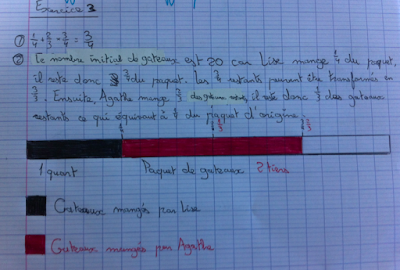 Exercice 3
① 1/4 + 2/3 × 3/4 = 3/4
② Le nombre initial de gateaux est 20 car Lise mange 1/4 du paquet,
il reste donc 3/4 du paquet. Les 3/4 restants peuvent être transformés en
3/3. Ensuite, Agathe mange 2/3 il reste donc 1/3 des gateaux
restants ce qui équivaut à du paquet d'origine.
1/3 2/3 3/3
1 quart Paquet de gateaux 2 tiers
Gateaux mangés par Lise
Gateaux mangés par Agathe